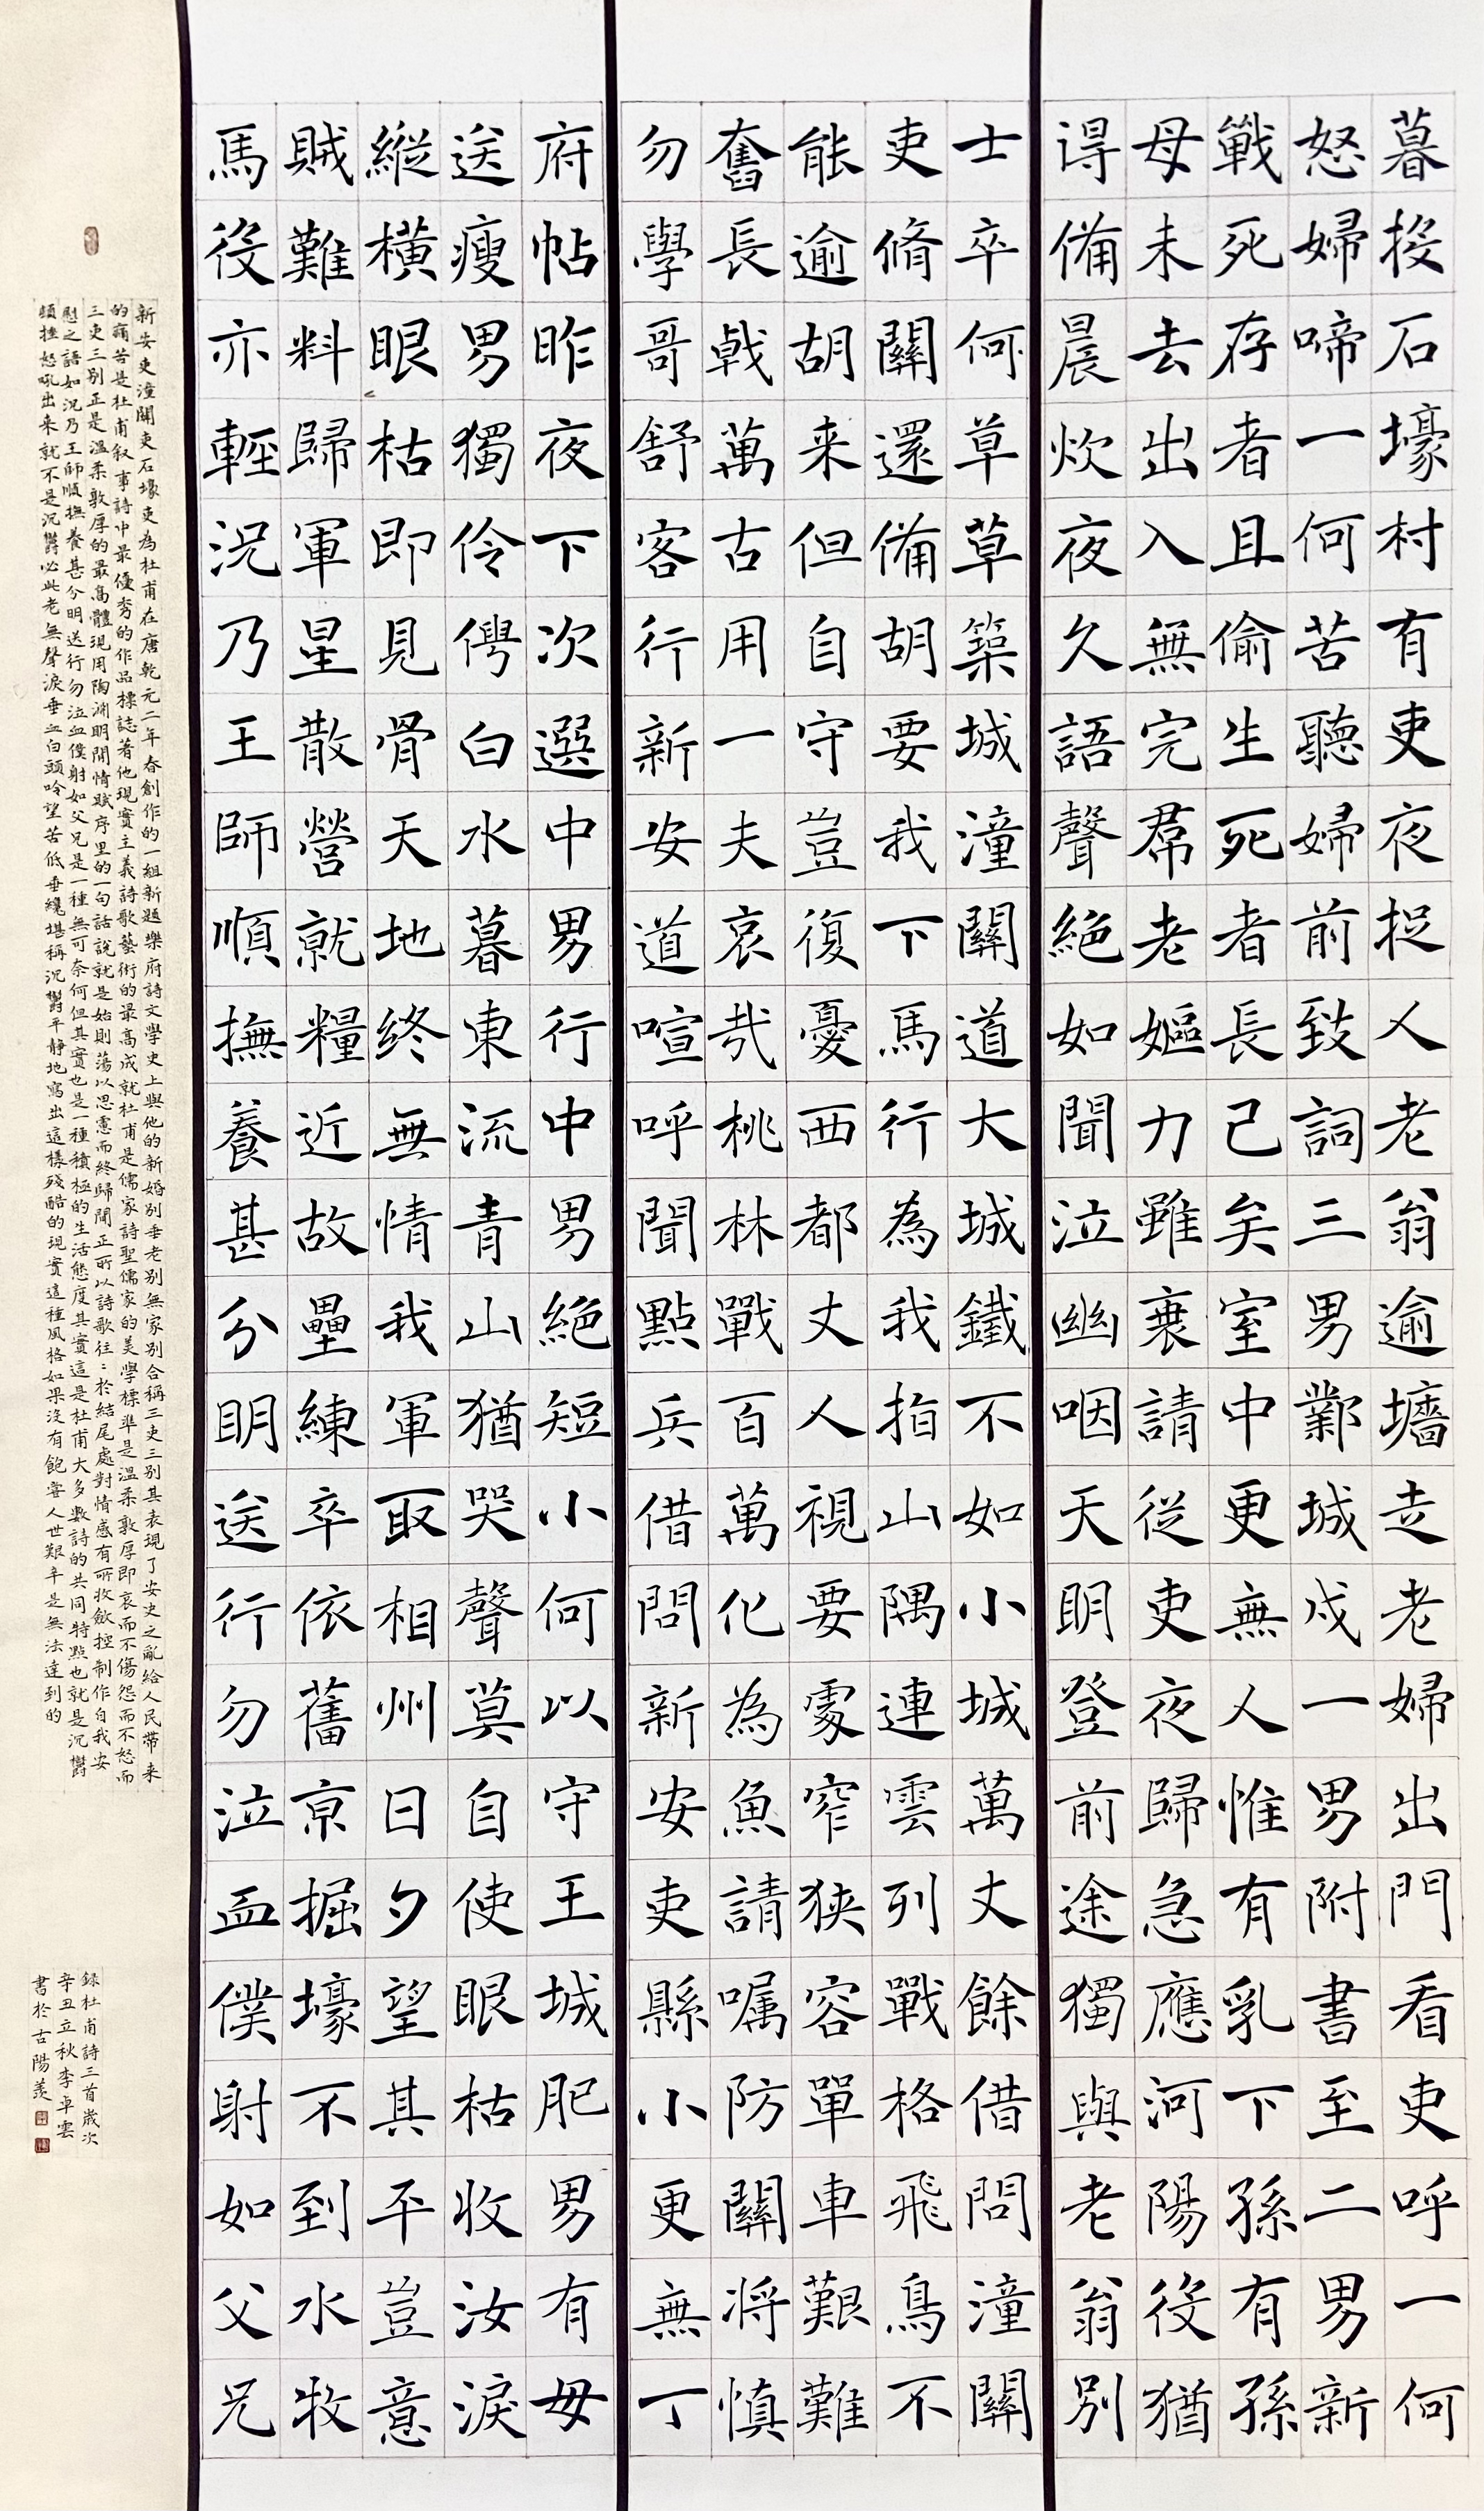 暮投石壕村有吏夜捉人老翁逾墻走老婦出門看吏呼一何
怒婦啼一何苦聽婦前致詞三男鄴城戍一男附書至二男新
戰死存者且偷生死者長已矣室中更無人惟有乳下孫有孫
母未去出入無完帬老嫗力雖衰請從吏夜歸急應河陽役猶
得備晨炊夜久語聲絕如聞泣幽咽天明登前途獨與老翁別
士卒何草草築城潼關道大城鐵不如小城萬丈餘借問潼關
吏脩關還備胡要我下馬行為我指山隅連雲列戰格飛鳥不
能逾胡来但自守豈復憂西都丈人視要處窄狹容單車艱難
奮長戟萬古用一夫哀哉桃林戰百萬化為魚請囑防關將慎
勿學哥舒客行新安道喧呼聞點兵借問新安吏縣小更無丁
府帖昨夜下次選中男行中男絕短小何以守王城肥男有母
送瘦男獨伶俜白水暮東流青山猶哭聲莫自使眼枯收汝淚
縱橫眼枯即見骨天地終無情我軍取相州日夕望其平豈意
賊難料歸軍星散營就糧近故壘練卒依舊京掘壕不到水牧
馬役亦輕況乃王師順撫養甚分明送行勿泣血僕射如父兄
新安吏潼關吏石壕吏為杜甫在唐乾元二年春創作的一組新題樂府詩文學史上與他的新婚別垂老別無家別合稱三吏三別其表現了安史之亂給人民帶来
的痛苦是杜甫叙事詩中最優秀的作品標誌著他現實主義詩歌藝術的最高成就杜甫是儒家詩聖儒家的美學標準是溫柔敦厚即哀而不傷怨而不怒而
三吏三別正是溫柔敦厚的最高體現用陶淵明閒情賦序里的一句話說就是始則蕩以思慮而終歸閒正所以詩歌往：於結尾處對情感有所收斂控制作自我安
慰之語如況乃王師順撫養甚分明送行勿泣血僕射如父兄是一種無可奈何但其實也是一種積極的生活態度其實這是杜甫大多數詩的共同特點也就是沉鬱
頓挫怒吼出来就不是沉鬱必此老無聲淚垂血白頭吟望苦低垂纔堪稱沉鬱平靜地寫出這樣殘酷的現實這種風格如果沒有飽嘗人世艱辛是無法達到的
録杜甫詩三首歲次
辛丑立秋李卓雲
書於古陽羨